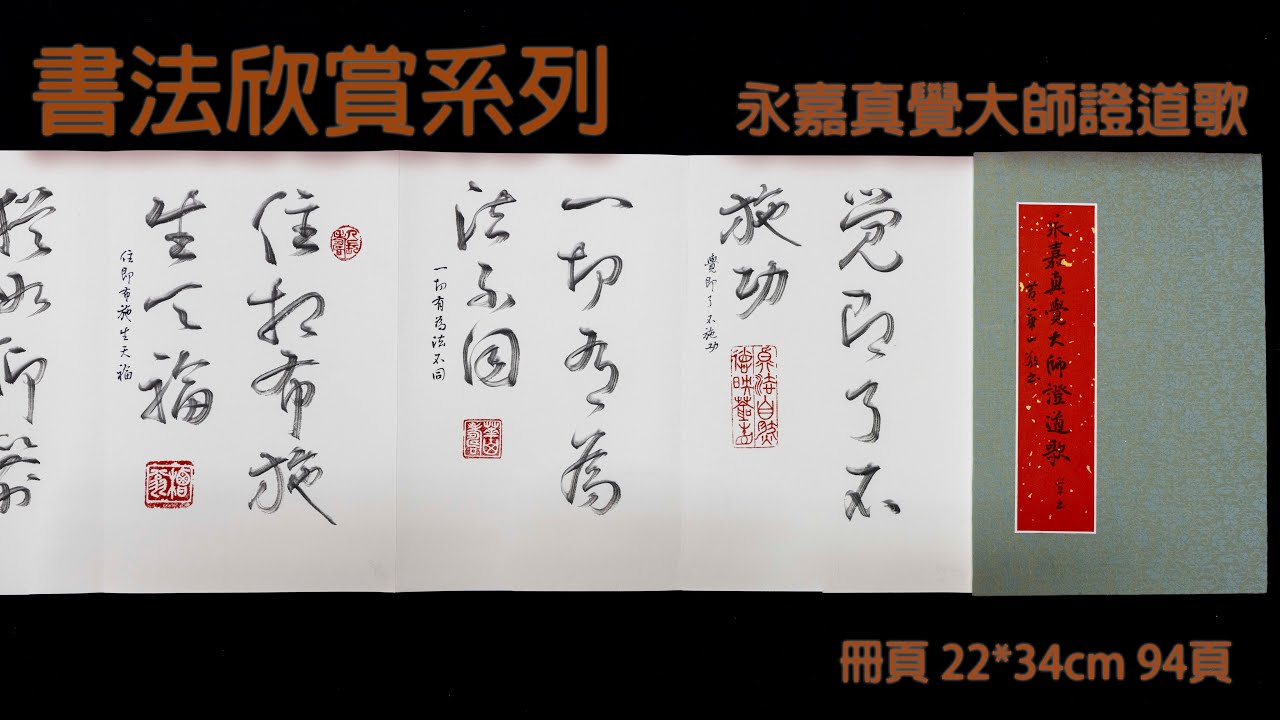 書法欣賞系列
永嘉真覺大師證道歌
永嘉真覺大師證道歌
覺即了不
施功
覺即了不施功
一切有為
法不同
一切有為法不同
住相布施
生天福
住即布施生天福
猶如仰箭
冊頁 22*34cm 94頁